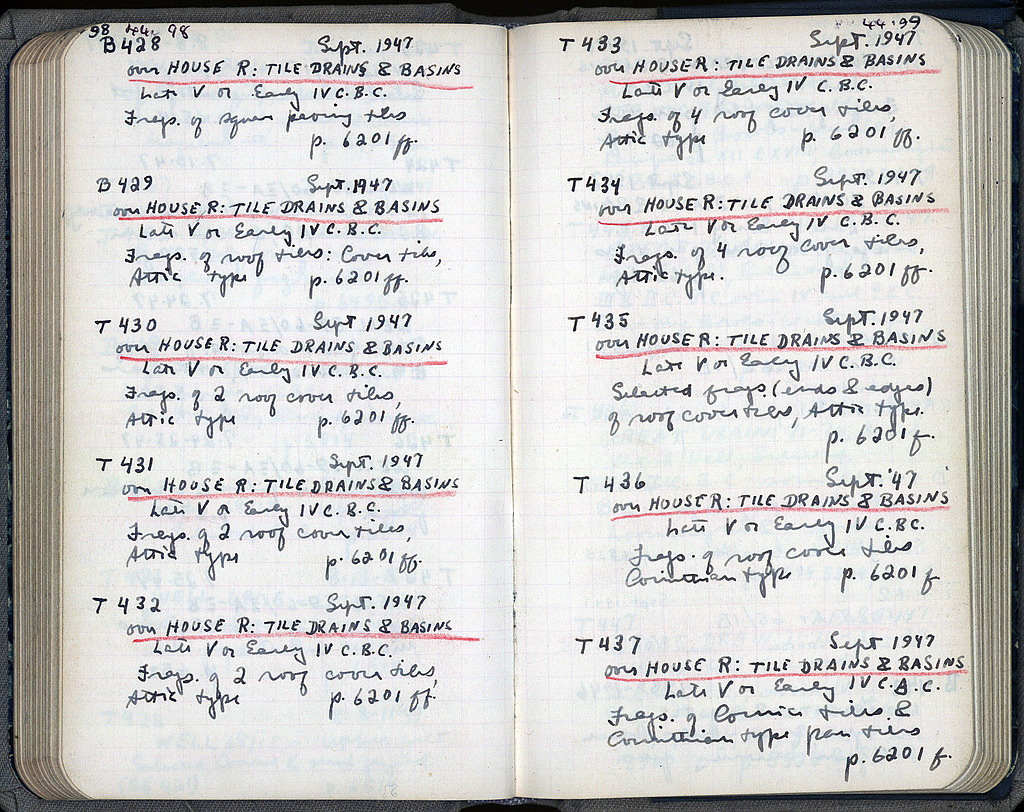 98 44. 98
B 428 Sept. 1947
over HOUSE R: TILE DRAINS & BASINS
Late V or Early IV C.B.C.
Frags. of square paving tiles
p. 6201 ff.
B 429 Sept. 1947
over HOUSE R: TILE DRAINS & BASINS
Late V or Early IV C.B.C.
Frags. of roof tiles: Cover tiles,
Attic type p. 6201 ff.
T 430 Sept 1947
over HOUSE R: TILE DRAINS & BASINS
Late V or Early IV C.B.C.
Frags. of 2 roof cover tiles,
Attic type p. 6201 ff.
T 431 Sept. 1947
over HOUSE R: TILE DRAINS & BASINS
Late V or Early IV C.B.C.
Frags. of 2 roof cover tiles,
Attic type p. 6201 ff.
T 432 Sept. 1947
over HOUSE R: TILE DRAINS & BASINS
Late V or Early IV C.B.C.
Frags. of 2 roof cover tiles,
Attic type p. 6201 ff.
44.99
T 433 Sept. 1947
over HOUSE R: TILE DRAINS & BASINS
Late V or Early IV C.B.C.
Frags. of 4 roof cover tiles,
Attic type p. 6201 ff.
T 434 Sept. 1947
over HOUSE R: TILE DRAINS & BASINS
Late V or Early IV C.B.C.
Frags. of 4 roof cover tiles,
Attic type. p. 6201 ff.
T 435 Sept. 1947
over HOUSE R: TILE DRAINS & BASINS
Late V or Early IV C.B.C.
Selected frags. (ends & edges)
of roof cover tiles, Attic type.
p. 6201 f.
T 436 Sept. '47
over HOUSE R: TILE DRAINS & BASINS
Late V or Early IV C.B.C.
Frags. of roof cover tiles
Corinthian type p. 6201 f
T 437 Sept 1947
over HOUSE R: TILE DRAINS & BASINS
Late V or Early IV C.B.C.
Frags. of Cornice tiles &
Corinthian type pan tiles
p. 6201 f.